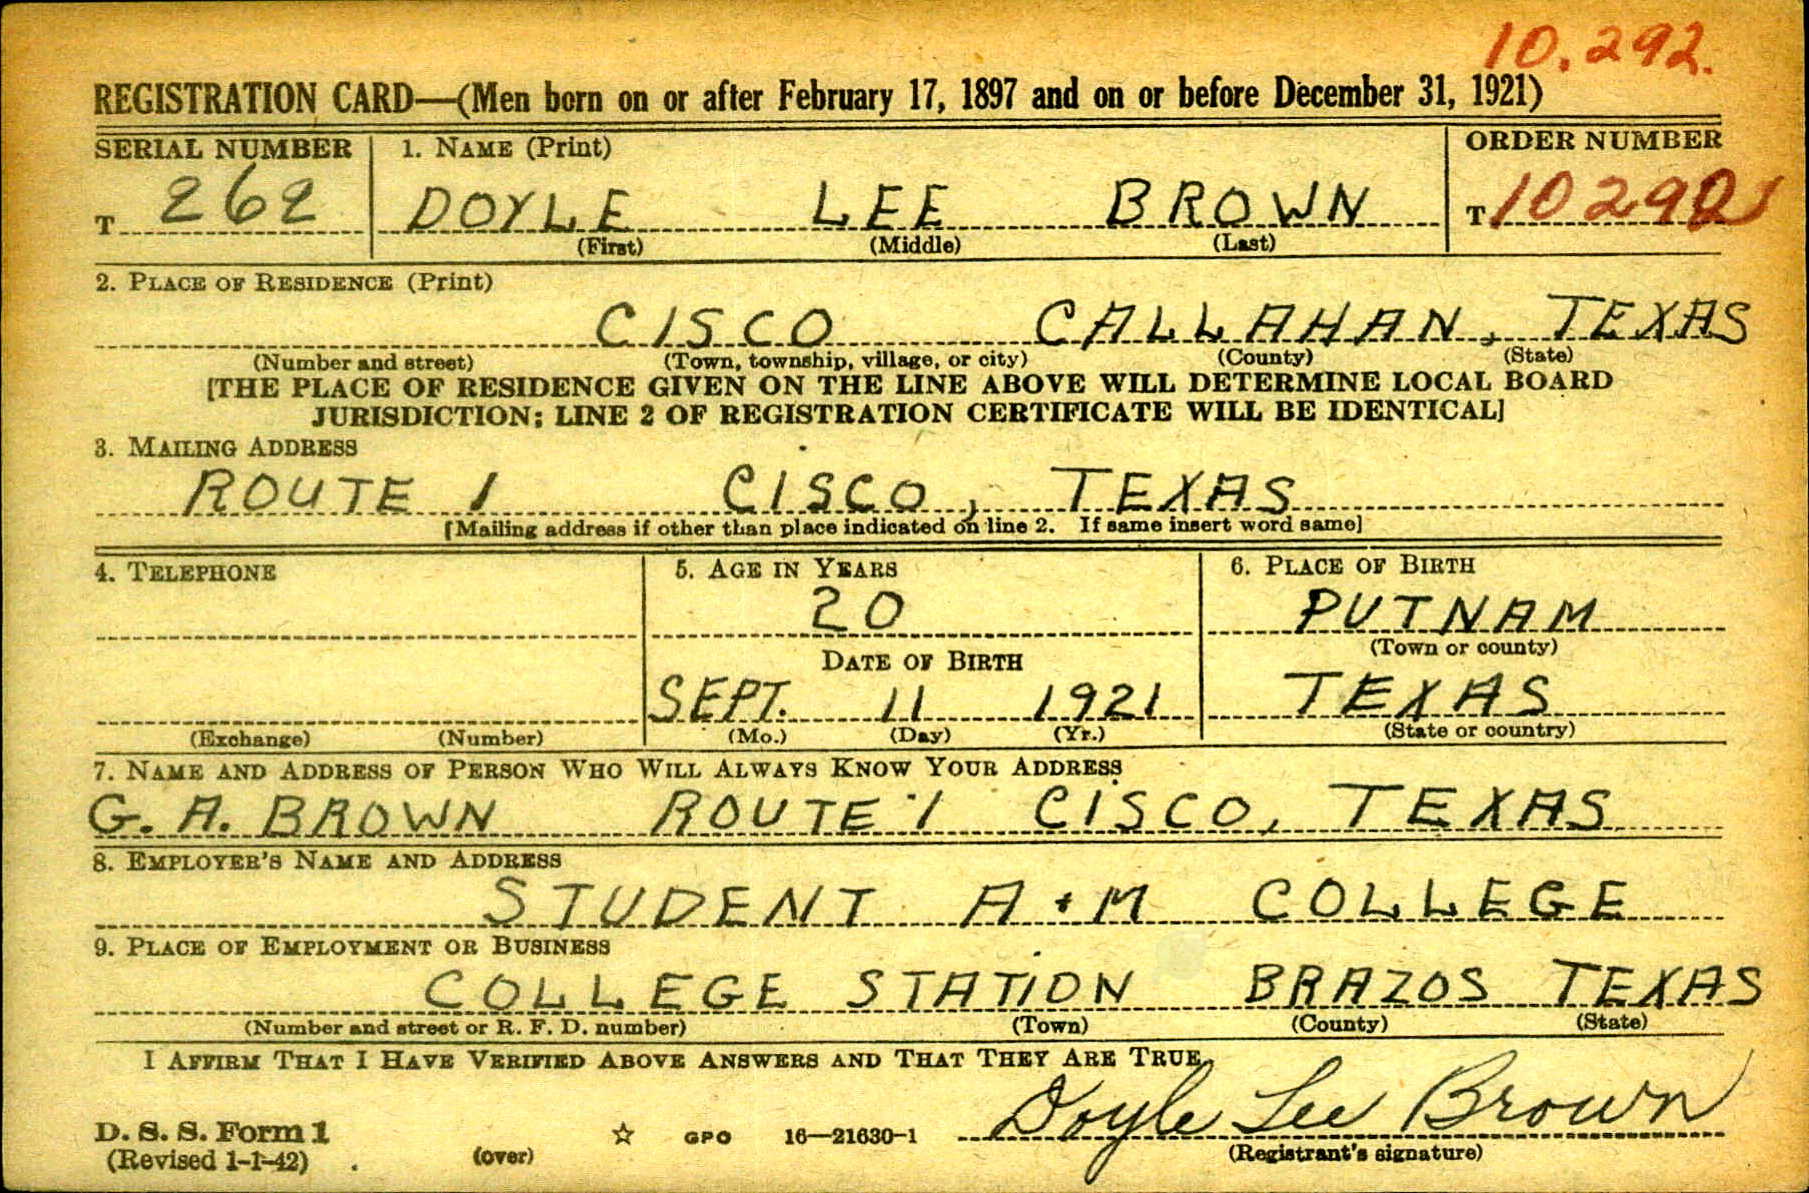 10.292.
REGISTRATION CARD—(Men born on or after February 17, 1897 and on or before December 31, 1921)
SERIAL NUMBER 1. NAME (Print) ORDER NUMBER
T 262 DOYLE LEE BROWN T
(First) (Middle) (Last)
2. PLACE OF RESIDENCE (Print)
CISCO CALLAHAN, TEXAS
(Number and street) (Town, township, village, or city) (County) (State)
[THE PLACE OF RESIDENCE GIVEN ON THE LINE ABOVE WILL DETERMINE LOCAL BOARD
JURISDICTION; LINE 2 OF REGISTRATION CERTIFICATE WILL BE IDENTICAL]
3. MAILING ADDRESS
ROUTE 1 CISCO, TEXAS
[Mailing address if other than place indicated on line 2. If same insert word same]
4. TELEPHONE 5. AGE IN YEARS 6. PLACE OF BIRTH
20 PUTNAM
(Town or county)
DATE OF BIRTH
SEPT. 11 1921 TEXAS
(Exchange) (Number) (Mo.) (Day) (Yr.) (State or country)
7. NAME AND ADDRESS OF PERSON WHO WILL ALWAYS KNOW YOUR ADDRESS
G. A. BROWN ROUTE 1 CISCO, TEXAS
8. EMPLOYER'S NAME AND ADDRESS
STUDENT A + M COLLEGE
9. PLACE OF EMPLOYMENT OR BUSINESS
COLLEGE STATION BRAZOS TEXAS
(Number and street or R. F. D. number) (Town) (County) (State)
I AFFIRM THAT I HAVE VERIFIED ABOVE ANSWERS AND THAT THEY ARE TRUE.
Doyle Lee Brown
D. S. S. Form 1
(Revised 1-1-42) (over) ☆ GPO 16—21630-1 (Registrant's signature)